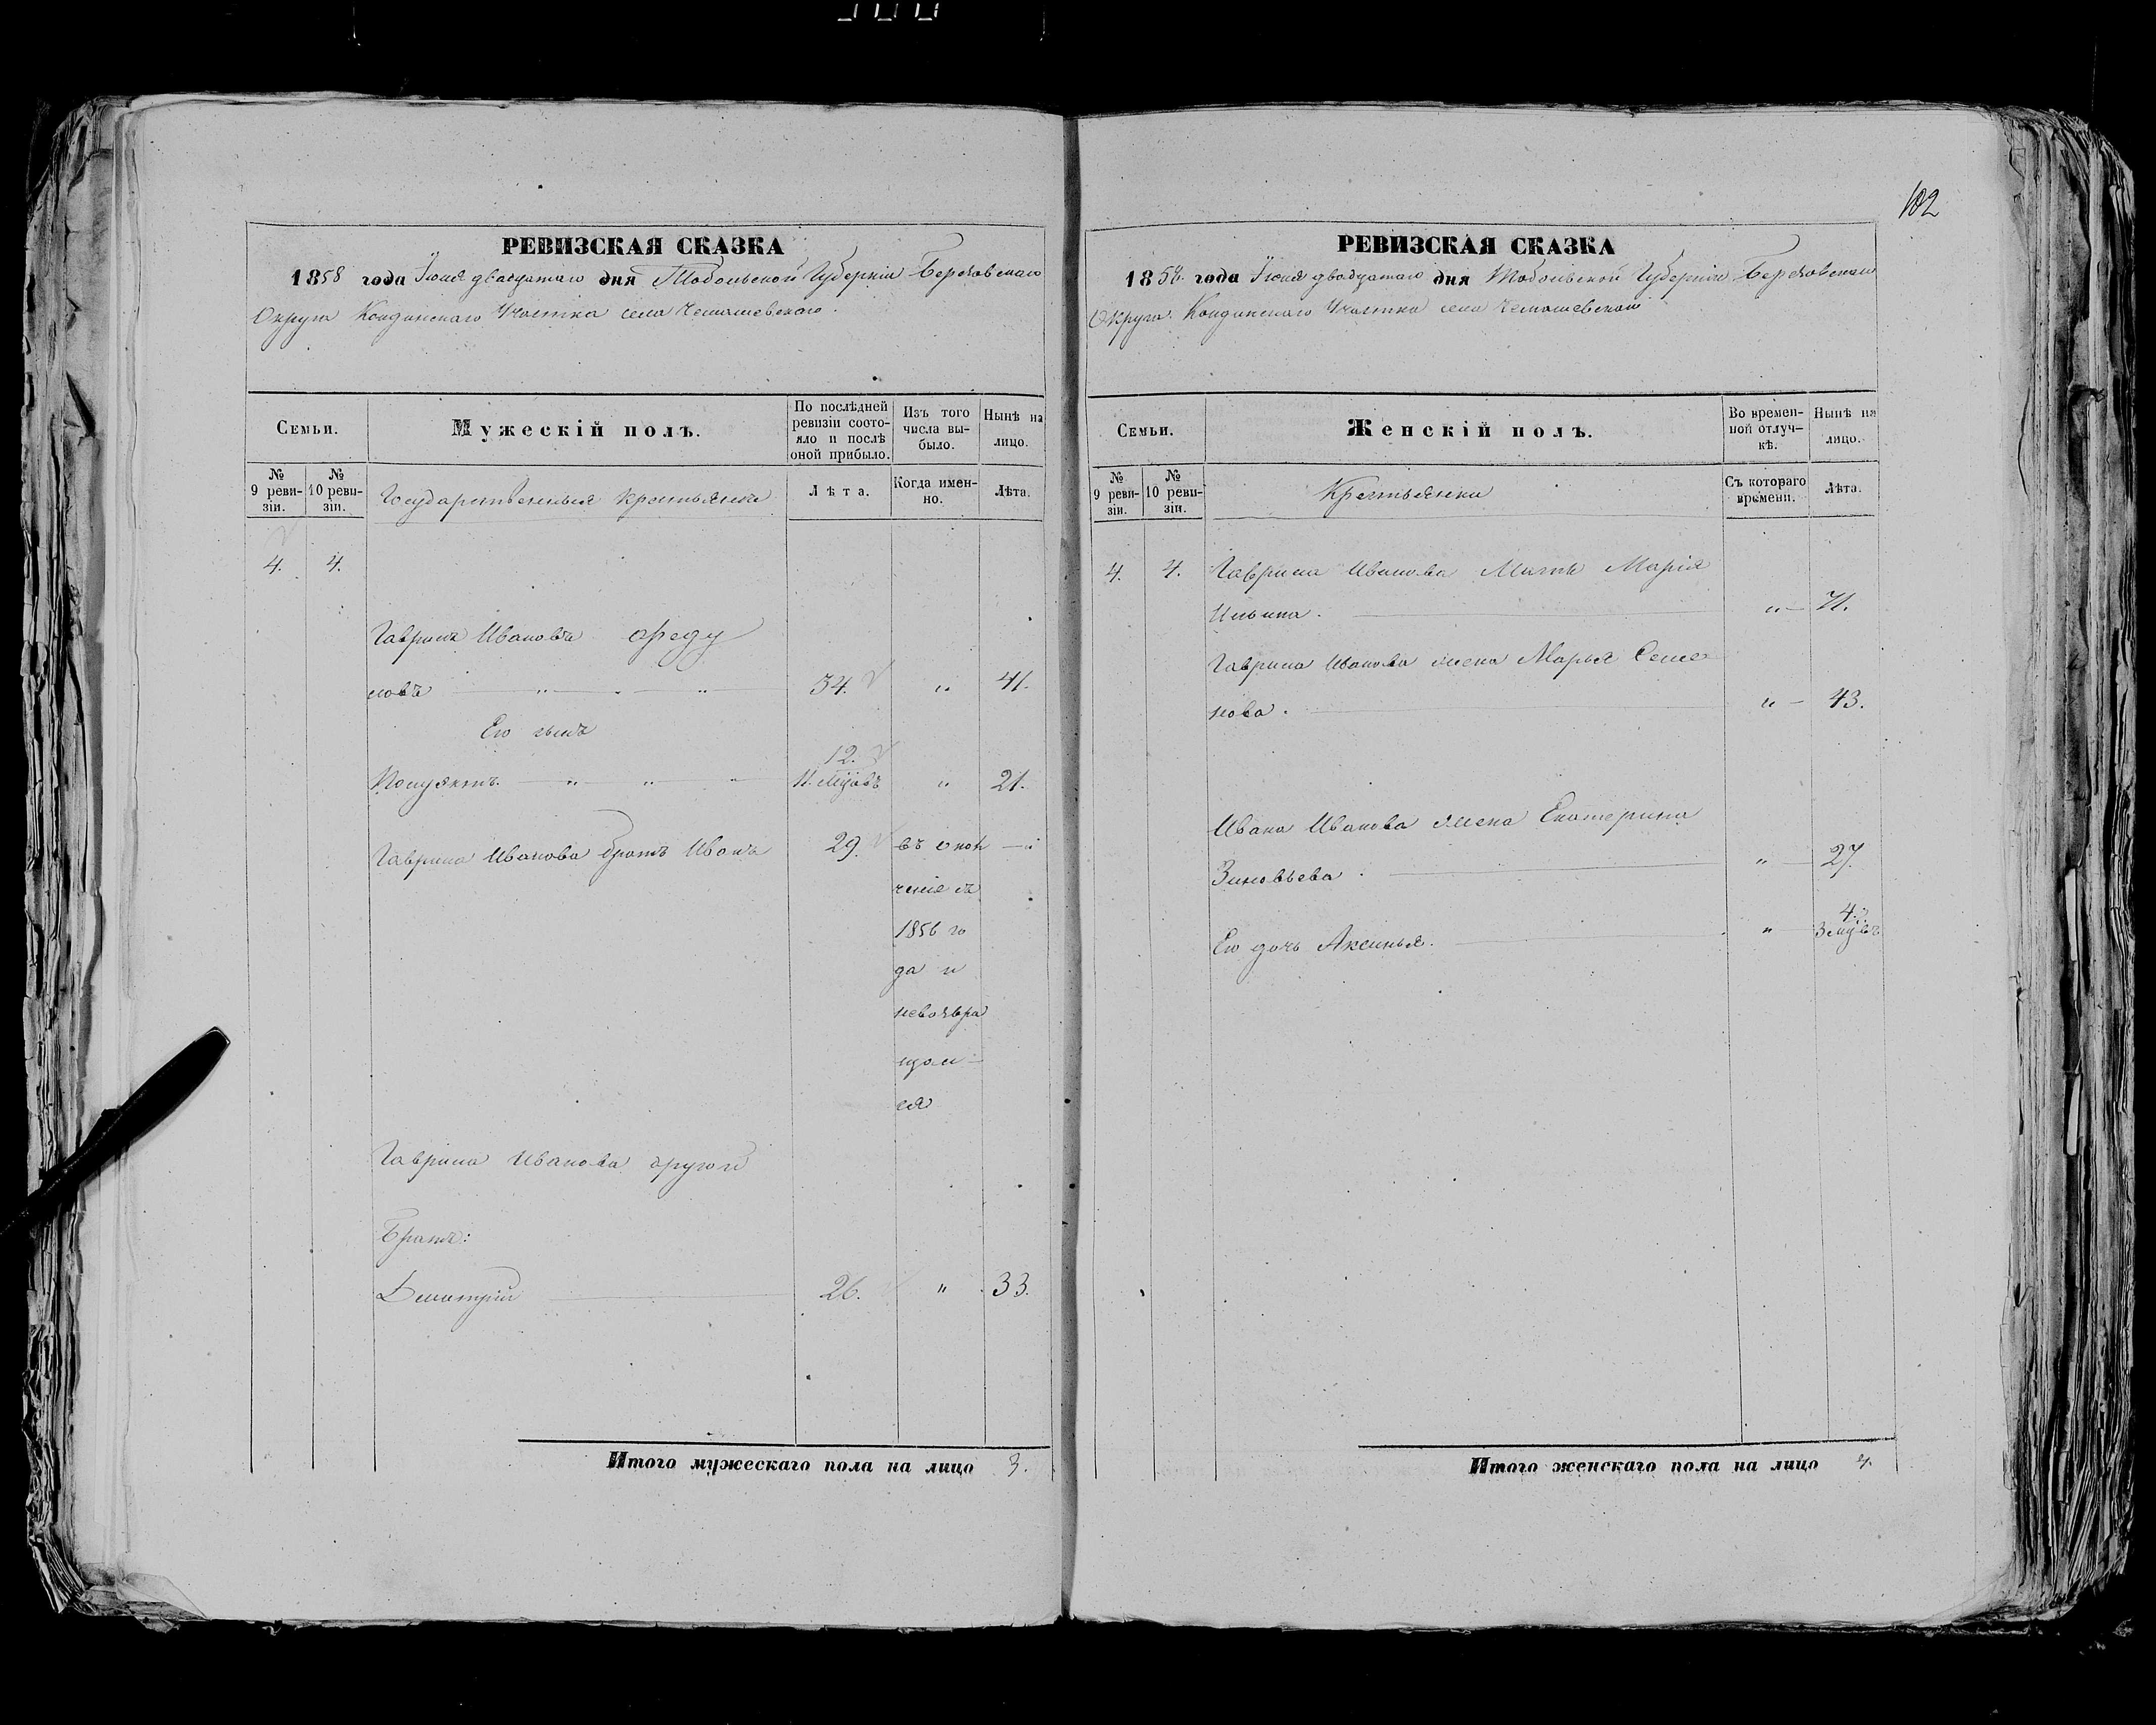 102
РЕВИЗСКАЯ СКАЗКА
1858 года Іюня двадцатаго дня Тобольской Губерніи Березовскаго
Округа Кондинскаго Участка села Чемашевскаго.
Семьи.
Мужескій полъ.
По послѣдней ревизіи состояло и послѣ оной прибыло.
Изъ того числа выбыло.
Нынѣ на лицо.
№ 9 ревизіи.
№ 10 ревизіи.
Государственныя крестьяне
Лѣта.
Когда именно.
Лѣта.
4. 4.
Гаврила Ивановъ
новъ 34. " 41.
Его сынъ
12.
11. мцовъ " 21.
Гаврила Иванова братъ Иванъ 29. въ
1856 го
да и
невозвра
щал
ся
Гаврила Иванова другой
Братъ:
Дмитрій 26. " 33.
Итого мужескаго пола на лицо 3.
РЕВИЗСКАЯ СКАЗКА
1858 года Іюня двадцатаго дня Тобольской Губерніи Березовскаго
Округа Кондинскаго Участка села Чемашевскаго
Семьи.
Женскій полъ.
Во временной отлучкѣ.
Нынѣ на лицо.
№ 9 ревизіи.
№ 10 ревизіи.
Крестьянки
Съ котораго времени.
Лѣта.
4. 4. Гаврила Иванова Мать Марія
Ильина. " 71.
Гаврила Иванова жена Марья Семе
нова. " 43.
Ивана Иванова жена Екатерина
Зиновьева. " 27.
4.
Его дочь Аксинья. " 3 мцъ
Итого женскаго пола на лицо 4.